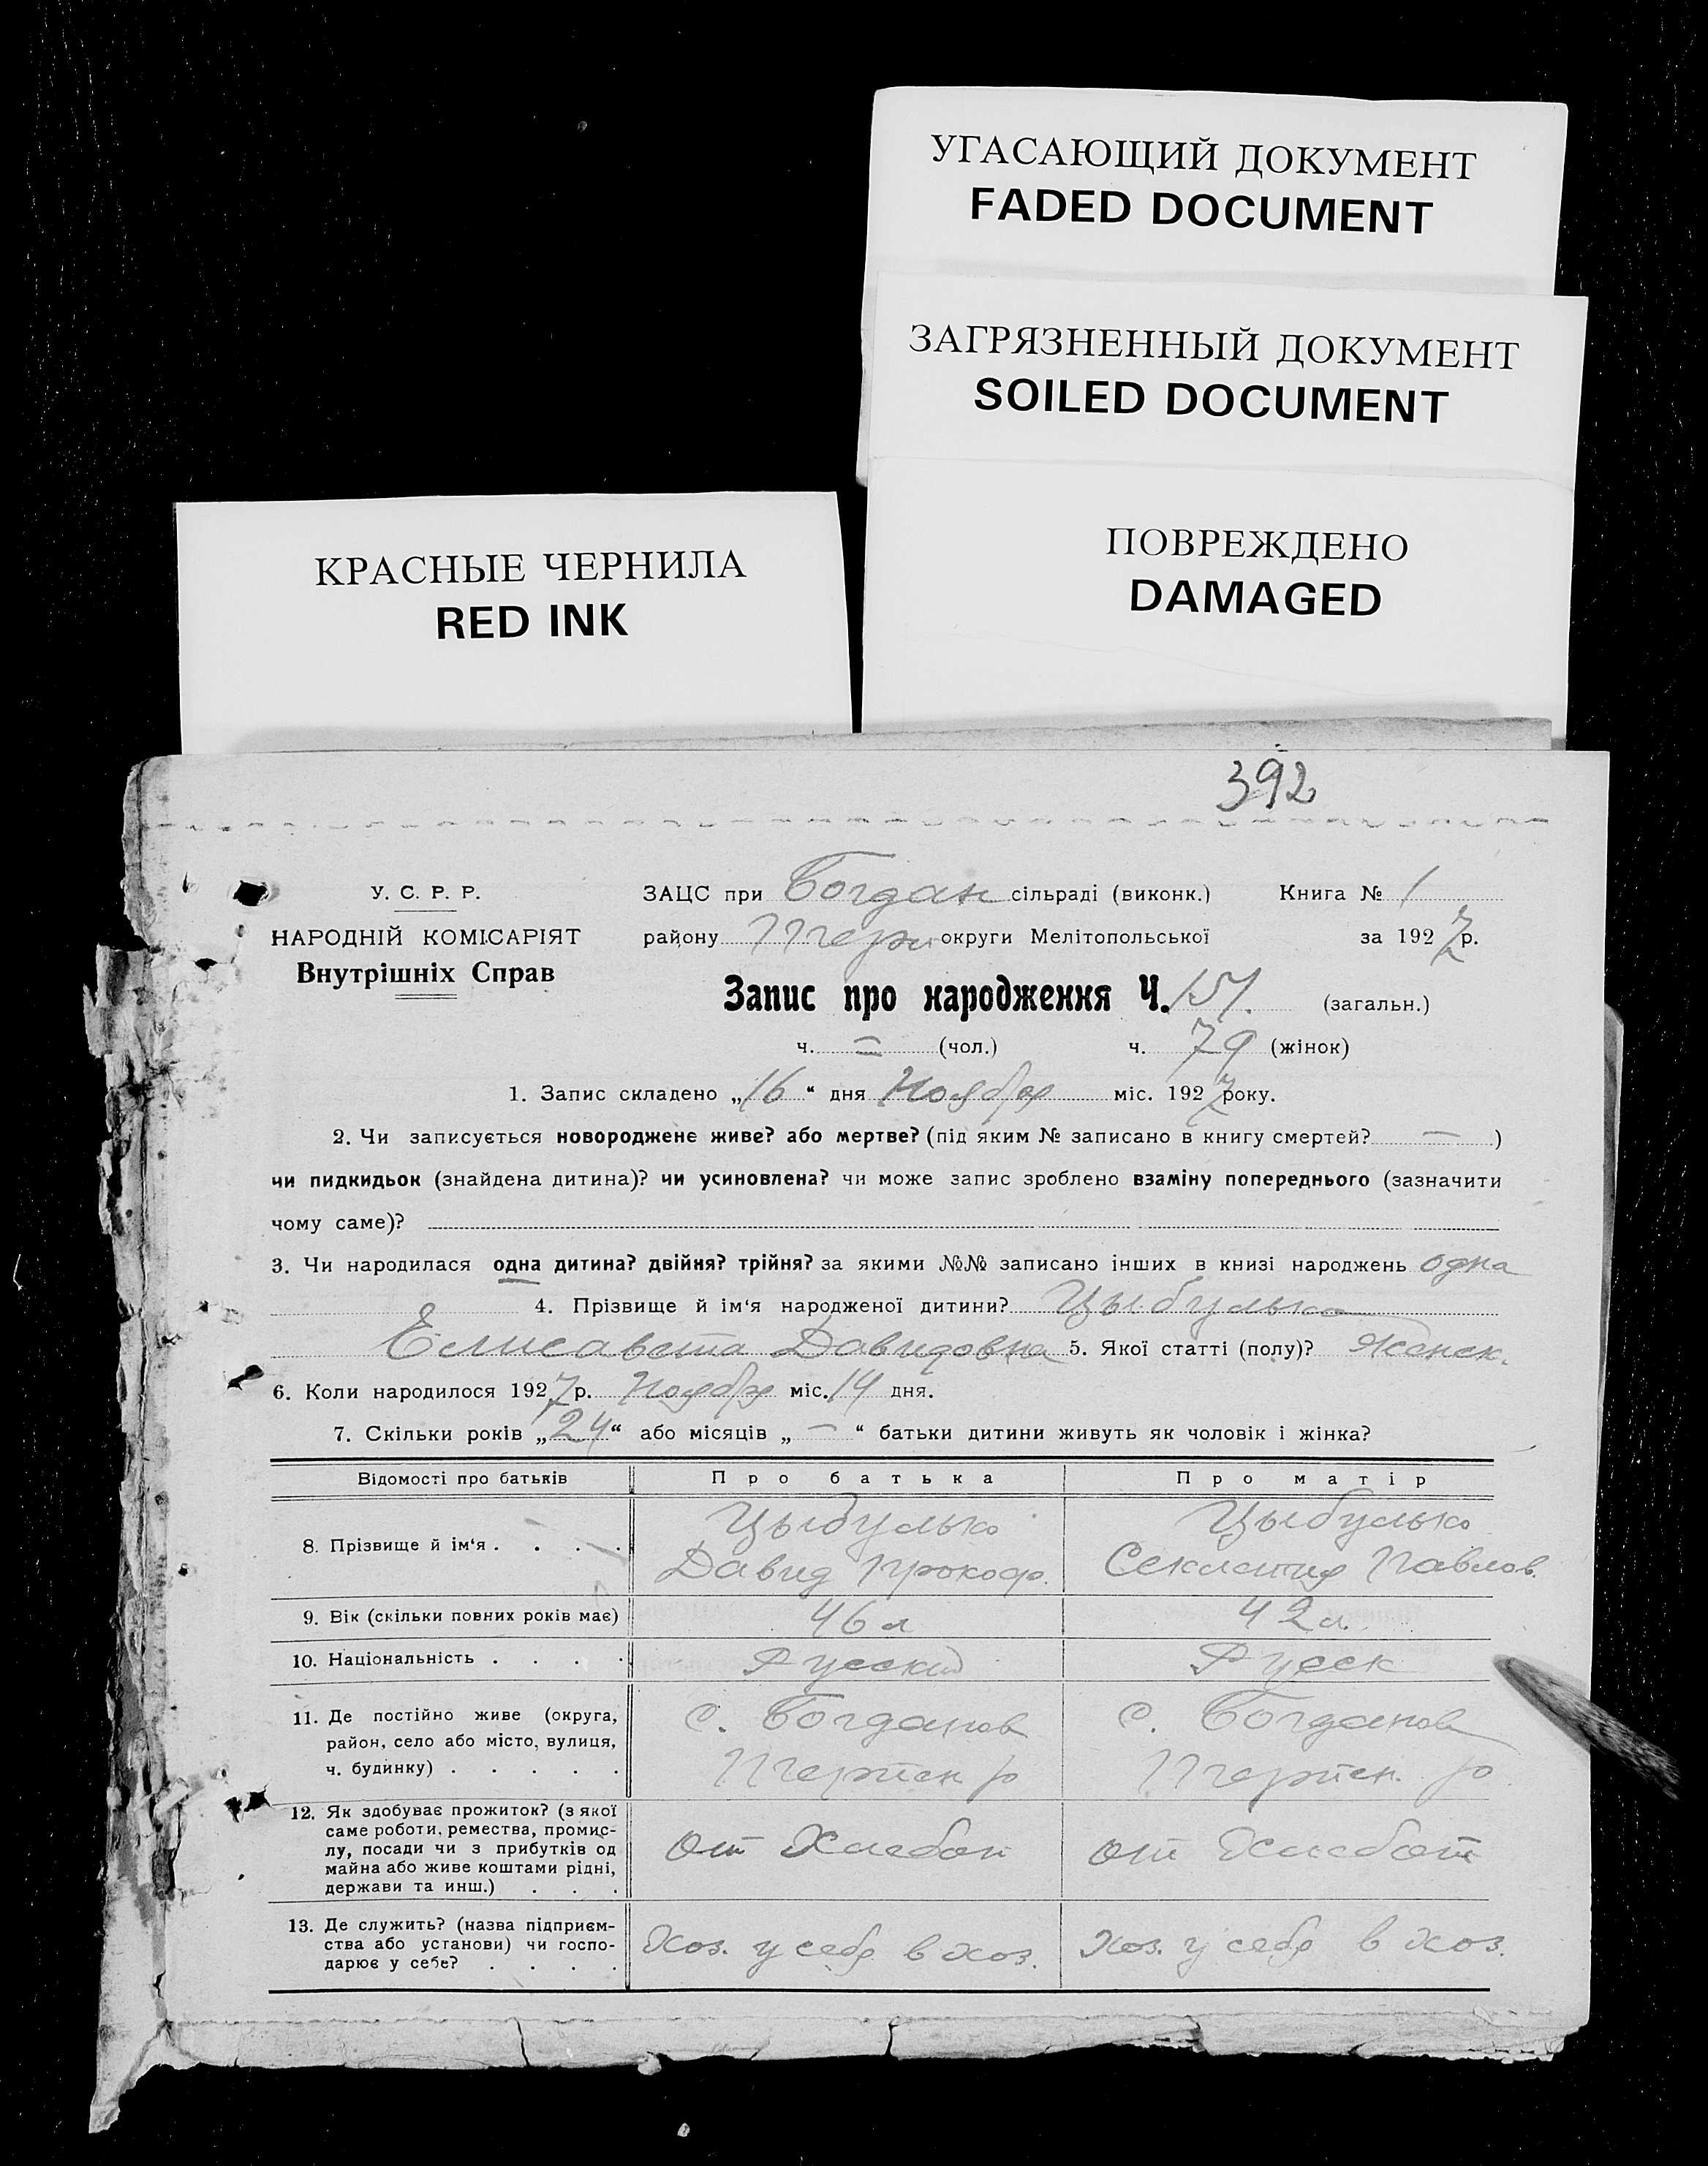 УГАСАЮЩИЙ ДОКУМЕНТ
FADED DOCUMENT
ЗАГРЯЗНЕННЫЙ ДОКУМЕНТ
SOILED DOCUMENT
ПОВРЕЖДЕНО
DAMAGED
КРАСНЫЕ ЧЕРНИЛА
RED INK
392
У. С. Р. Р.
НАРОДНІЙ КОМІСАРІЯТ
Внутрішніх Справ
ЗАЦС при Богдан сільраді (виконк.) Книга № 1
району округи Мелітопольської за 1927 р.
Запис про народження Ч. 151. (загальн.)
ч. — (чол.) ч. 79 (жінок)
1. Запис складено „16“ дня Ноября міс. 1927 року.
2. Чи записується новороджене живе? або мертве? (під яким № записано в книгу смертей? — )
чи пидкидьок (знайдена дитина)? чи усиновлена? чи може запис зроблено взаміну попереднього (зазначити
чому саме)?
3. Чи народилася одна дитина? двійня? трійня? за якими №№ записано інших в книзі народжень одна
4. Прізвище й ім‘я народженої дитини? Цыбулько
Елисавета Давидовна 5. Якої статті (полу)? Женск.
6. Коли народилося 1927 р. Ноября міс. 14 дня.
7. Скільки років „24“ або місяців „ — “ батьки дитини живуть як чоловік і жінка?
Відомості про батьків Про батька Про матір
8. Прізвище й ім‘я . . . . Цыбулько Цыбулько
Давид Прокоф. Павлов.
9. Вік (скільки повних років має) 46 л 42 л.
10. Національність . . . . Русский Русск
11. Де постійно живе (округа, с. Богданов с. Богданов
район, село або місто, вулиця,
ч. будинку) . . . . .
12. Як здобуває прожиток? (з якої
саме роботи, ремества, промис-
лу, посади чи з прибутків од от Хлебоп от Хлебоп
майна або живе коштами рідні,
держави та инш.) . . .
13. Де служить? (назва підприєм-
ства або установи) чи госпо- Хоз. у себя в хоз. Хоз. у себя в хоз.
дарює у себе? . . . .